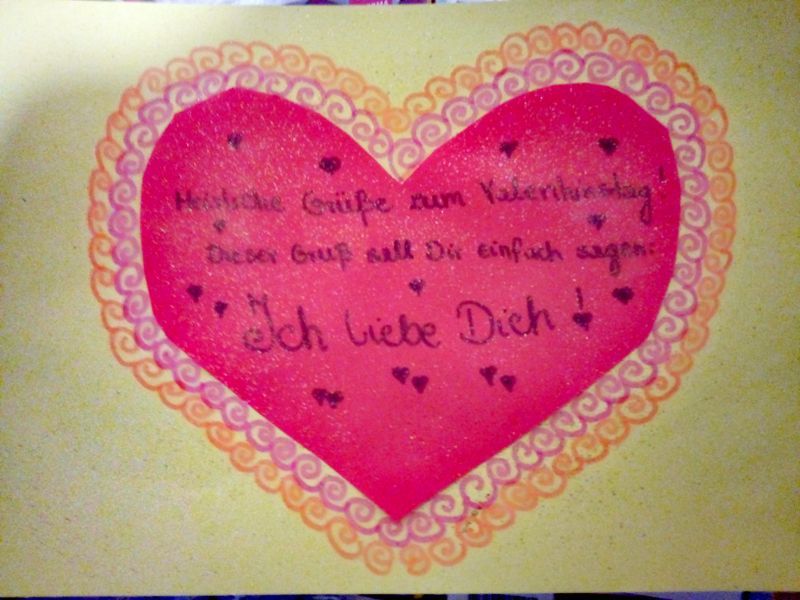 Herzliche Grüße zum Valentinstag!
Dieser Gruß soll Dir einfach sagen:
Ich liebe Dich!